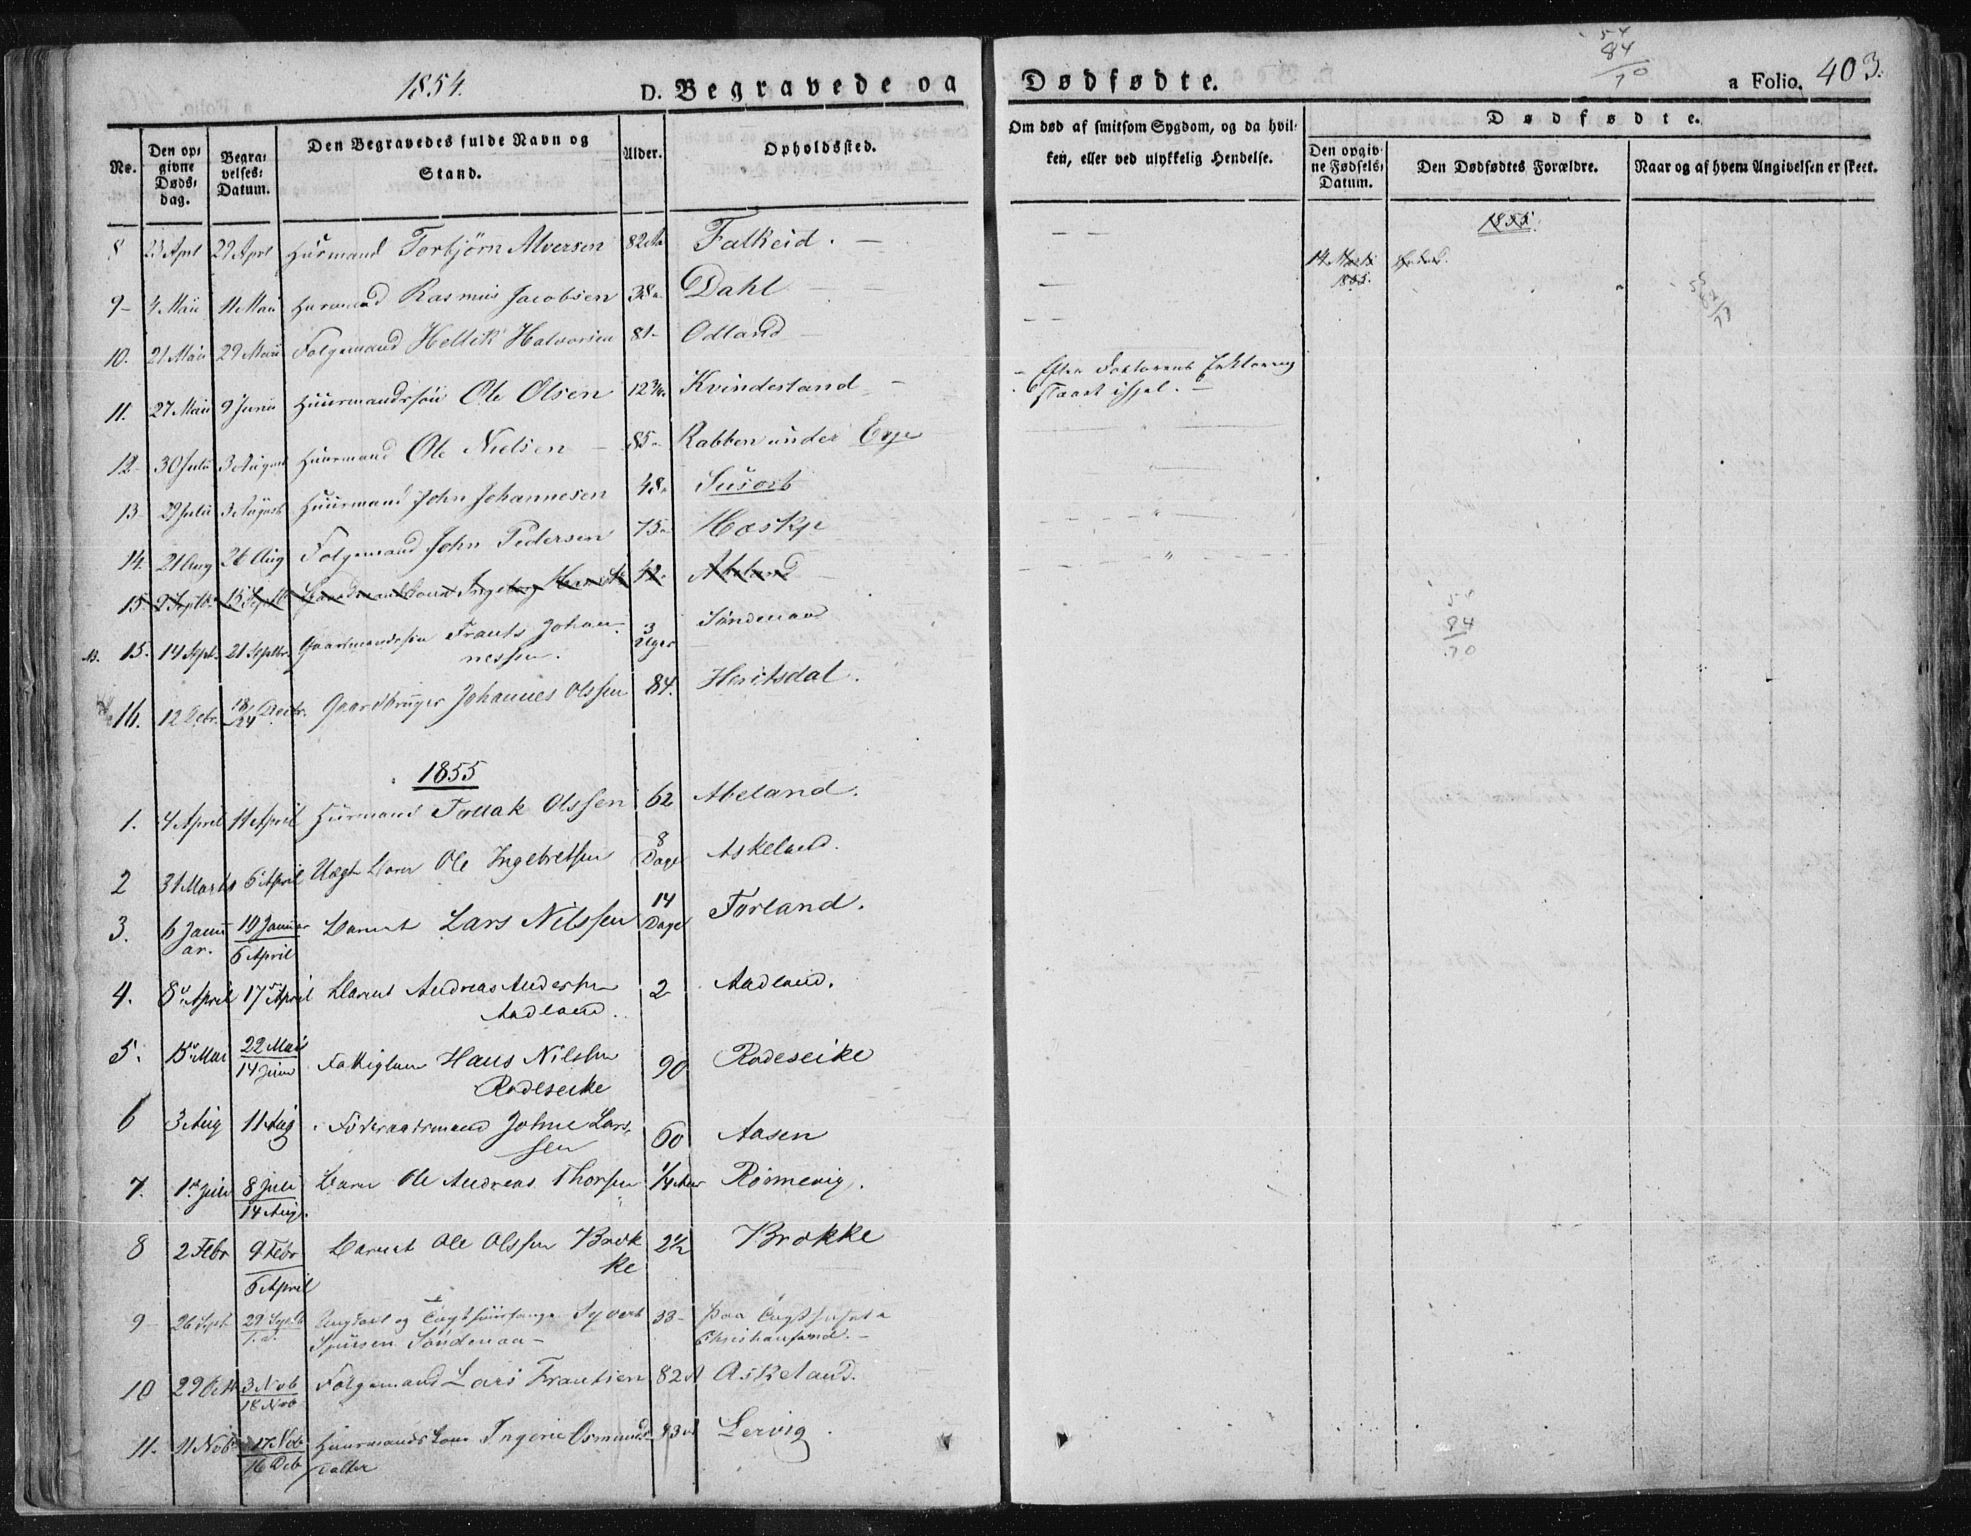 1854.
D. Begravede og Dødfødte.
a Folio. 403.
54
84
70
No.
Den opgivne Dødsdag.
Begravelses Datum.
Den Begravedes fulde Navn og Stand.
Alder.
Opholdssted.
Om død af smitsom Sygdom, og da hvilken, eller ved ulykkelig Hendelse.
Dødfødte.
Den opgivne Fødsels Datum.
Den Dødfødtes Forældre.
Naar og af hvem Angivelsen er skeet.
1855.
8 23 Aprl 29 Aprl Huusmand Torbjørn Alversen 82 Falkeid. —
14 Marts 1855.
9 4 Maii 11 Maii Huusmand Rasmus Jacobsen 38 Dahl
10. 21 Maii 29 Maii Følgemand Hellik Halvorsen 81 Odland
11. 27 Maii 9 Junii Huusmandssøn Ole Olsen 12 3/4 Kvindesland — Efter Doctorens Erklæring
12 30 Julii 3 August Huusmand Ole Nielsen 85 Rabben under Evje
13 29 Julii 3 August Huusmand John Johannesen 48 Susort
14. 21 Aug 26 Aug Følgemand John Pedersen 75 Hæskje
15. 9 Septbr 15 Septbr Ingeborg 42 Abeland
15. 14 Sept. 21 Septbr. Gaardmandssøn Frants Johannessen. 3 Uger Søndenaa
84
70
16. 12 Debr. 18/24 Decbr. Gaardbruger Johannes Olssen 84. Heritsdal.
1855
1. 4 April 11 April Huusmand Tollak Olssen 62 Abeland.
2 31 Marts 6 April Uægte Barn Ole Ingebretsen 8 Dage Askeland.
3. 6 Januar. 10 Januar 6 April Barnet Lars Nilssen 14 Dage Førland.
4. 8de April 17 April Barnet Andreas Andersen Aadland. 2 Aadland.
5. 15 Mai 22 Mai 14 Juni Fattiglem Hans Nilssen Rodeseike 90 Rodeseike
6 3 Aug 11 Aug Føderaadsmand Johne Larssen 60 Aasen
7. 1 Juli 8 Juli 14 Aug. Barn Ole Andreas Thorsen 1/4 Aar Rönnevig.
8 2 Febr 9 Febr 6 April Barnet Ole Olssen Brokke 2 1/2 Brokke
9 26 Sept 29 Septb og Tugthuusfange Syvert Sjursen Søndenaa 33 paa Tugthuset i Christiansand. —
10 29 Oct 3 Nob 18 Nob Følgemand Lars Frantsen 82 A Askeland.
11. 11 Nob 17 Nob 16 Deb Huusmands Kone Ingerie Osmundsdatter 83 A Lervig.